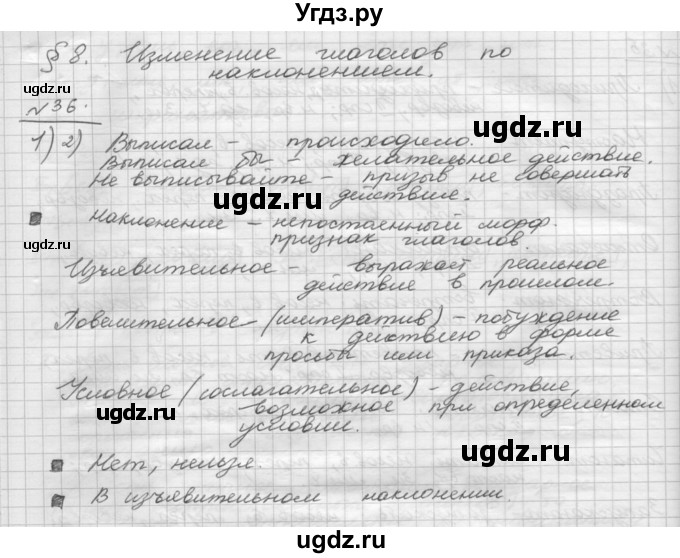 Угдз.ру
§ 8. Изменение глаголов по
наклонением.
№36.
1) 2) Выписал – происходило.
Выписал бы – желательное действие.
Не выписывайте – призыв не совершать
действие.
Наклонение – непостоенный морф.
признак глаголов.
Изъявительное – выражает реальное
действие в прошлом.
Повелительное – (императив) – побуждение
к действию в форме
просьбы или приказа.
Условное (сослагательное) – действие,
возможное при определенном
условии.
Нет, нельзя.
В изъявительном наклонении.
ugdz.ru
ugdz.ru
ugdz.ru
ugdz.ru
ugdz.ru
ugdz.ru
ugdz.ru
ugdz.ru
ugdz.ru
Угдз.ру